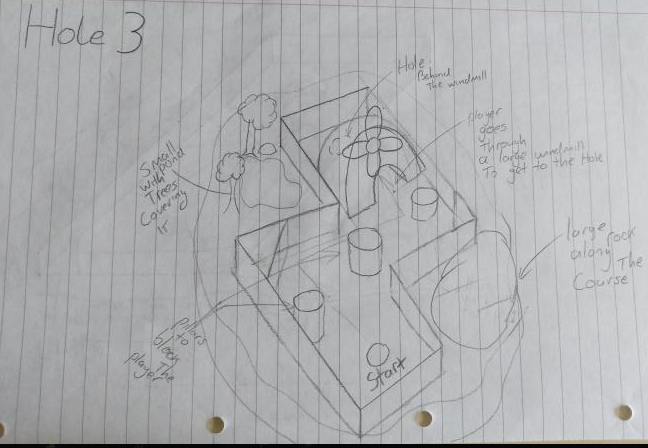 Hole 3
Hole
Behind
The windmill
player
goes
Through
a large windmill
To get to the Hole
Small
pond
with
Trees
Covering
it
large rock
along
The
Course
pillars
to
block
The
player
Start